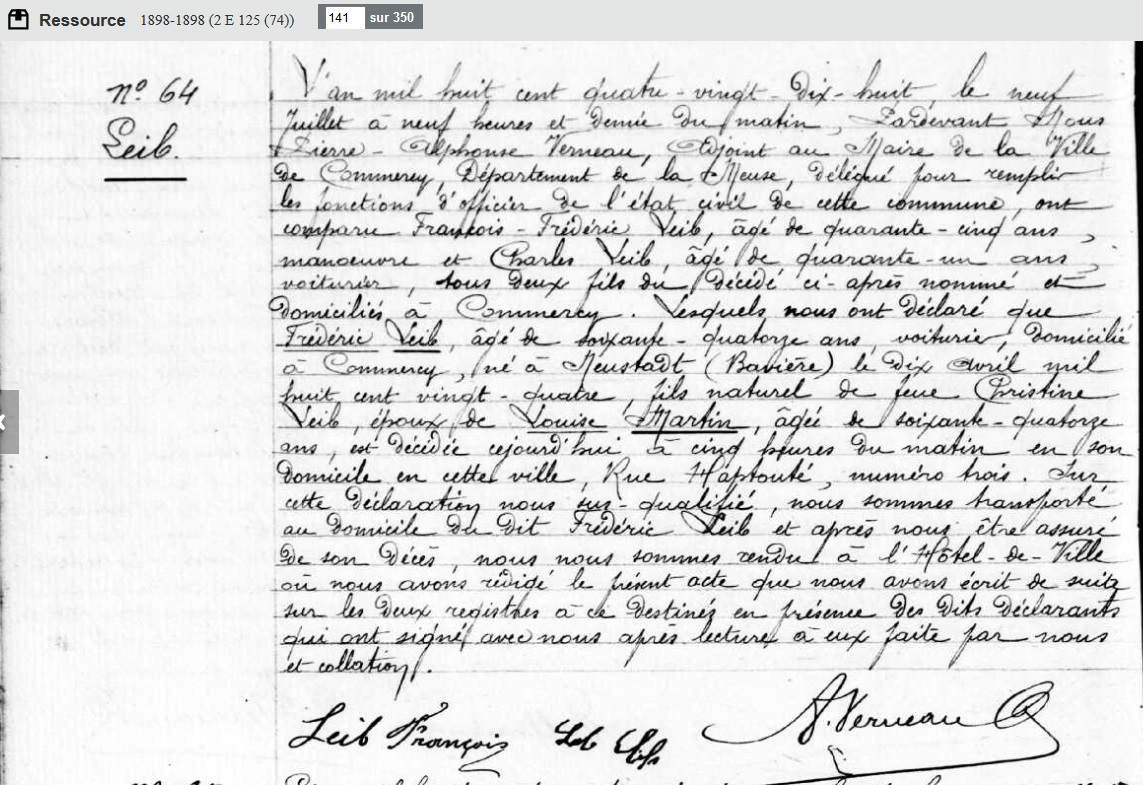 Ressource 1898-1898 (2 E 125 (74)) 141 sur 350
N° 64
Leib
L'an mil huit cent quatre-vingt-dix-huit, le neuf
Juillet à neuf heures et demie du matin, Pardevant Nous
Pierre-Alphonse Verneau, Adjoint au Maire de la Ville
de Commercy, Département de la Meuse, délégué pour remplir
les fonctions d'officier de l'état civil de cette commune, ont
comparu François-Frédéric Leib, âgé de quarante-cinq ans,
manoeuvre et Charles Leib, âgé de quarante-un ans,
voiturier, tous deux fils du décédé ci-après nommé et
domiciliés à Commercy. Lesquels nous ont déclaré que
Frédéric Leib, âgé de soixante-quatorze ans, voiturier, domicilié
à Commercy, né à Neustadt (Bavière) le dix avril mil
huit cent vingt-quatre, fils naturel de feue Christine
Leib, époux de Louise Martin, âgée de soixante-quatorze
ans, est décédé cejourd'hui à cinq heures du matin en son
domicile en cette ville, Rue Haptouté, numéro trois. Sur
cette déclaration nous sus-qualifié, nous sommes transporté
au domicile du dit Frédéric Leib et après nous être assuré
de son décès, nous nous sommes rendu à l'Hôtel-de-Ville
où nous avons rédigé le présent acte que nous avons écrit de suite
sur les deux registres à ce destinés en présence des dits déclarants
qui ont signé avec nous après lecture à eux faite par nous
et collation.
Leib François Leib A. Verneau